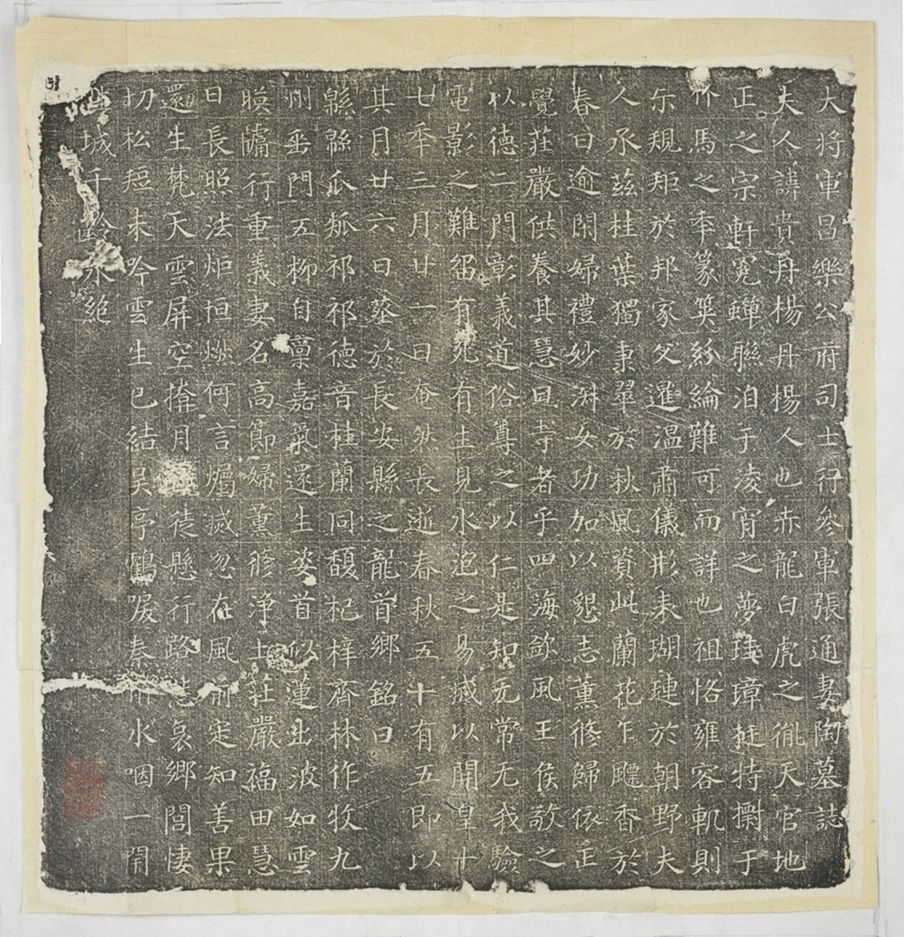 大將軍昌樂公府司士行參軍張通妻陶墓誌
夫人諱貴丹楊丹楊人也赤龍白虎之徵天官地
正之宗軒冕蟬聯洎于凌宵之夢珪璋挺特擢于
作馬之季篆筴紛綸難可而詳也祖恪雍容軌則
尒規矩於邦家父暹温肅儀形表瑚璉於朝野夫
人承茲桂葉獨秉翠於秋風資此蘭花乍飄香於
春日逾閑婦禮妙洲女功加以懇志薰修歸依正
覺莊嚴供養其慧日寺者乎四海欽風王侯敬之
以德二門彰義道俗尊之以仁是知无常无我驗
電影之難留有死有生見水泡之易滅以開皇十
七季三月廿一日奄然長逝春秋五十有五即以
其月廿六日葬於長安縣之龍首鄉銘曰
緜緜瓜瓞祁祁德音桂蘭同馥杞梓齊林作牧九
州垂門五柳自稟嘉氣還生姿首似蓮出波如雲
暎牖行重義妻名高節婦薰修淨土莊嚴福田慧
日長照法炬恒燃何言燭滅忽在風前定知善果
還生梵天雲屏空掩月徒懸行路悲哀鄉閭悽
切松短未吟雲生已結吴亭鶴唳秦川水咽一閇
城千齡永絕